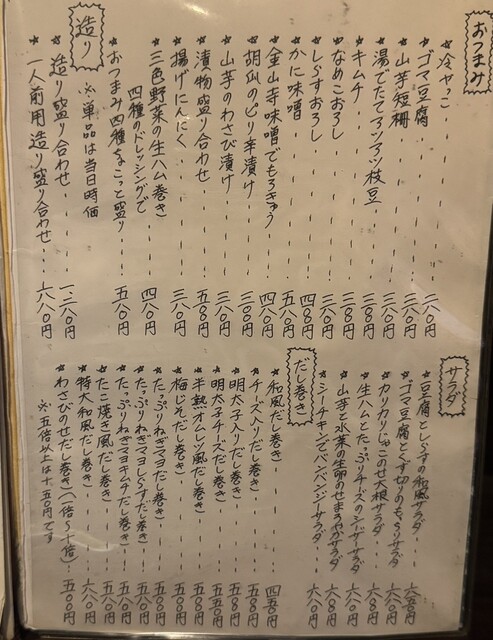 おつまみ
★冷やっこ 二八〇円
★ゴマ豆腐 三八〇円
★山芋短冊 三八〇円
★湯でたてアツアツ枝豆 三八〇円
★キムチ 三八〇円
★なめこおろし 三八〇円
★しらすおろし 三八〇円
★かに味噌 四八〇円
★金山寺味噌でもろきゅう 四八〇円
★胡瓜のピリ辛漬け 三八〇円
★山芋のわさび漬け 三八〇円
★漬物盛り合わせ 五八〇円
★揚げにんにく 三八〇円
★三色野菜の生ハム巻き
四種のドレッシングで 四八〇円
★おつまみ四種ちょこっと盛り 五八〇円
造り
※単品は当日時価
★造り盛り合わせ 一、二八〇円
★一人前用造り盛り合わせ 六八〇円
サラダ
★豆腐としらすの和風サラダ 六五〇円
★ゴマ豆腐とくず切りのもっちりサラダ 六八〇円
★カリカリじゃこのせ大根サラダ 六八〇円
★生ハムとたっぷりチーズのシーザーサラダ 六八〇円
★山芋と水菜の生卵のせまろやかサラダ 六八〇円
★シーチキンでバンバンジーサラダ 六八〇円
だし巻き
★和風だし巻き 四五〇円
★チーズ入りだし巻き 五八〇円
★明太子入りだし巻き 五八〇円
★明太子チーズだし巻き 五五〇円
★半熟オムレツ風だし巻き 五八〇円
★梅じそだし巻き 五〇〇円
★たっぷりねぎマヨだし巻き 五五〇円
★たっぷりねぎマヨしらすだし巻き 五八〇円
★たっぷりねぎマヨキムチだし巻き 五八〇円
★たこ焼き風だし巻き 五五〇円
★特大和風だし巻き 六八〇円
★わさびのせだし巻き(一倍〜十倍) 五〇〇円
※五倍以上は+五〇円です